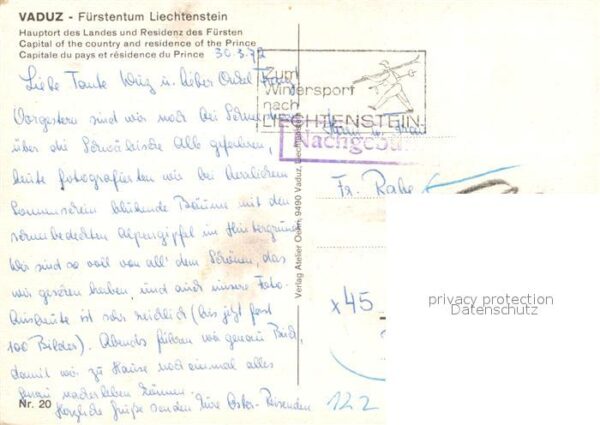 VADUZ - Fürstentum Liechtenstein
Hauptort des Landes und Residenz des Fürsten
Capital of the country and residence of the Prince
Capitale du pays et résidence du Prince 30.3.72
Liebe Tante u. lieber Onkel Franz
Vorgestern sind wir noch bei
über die Schwäbische Alb gefahren,
heute fotografierten wir bei herrlichem
Sonnenschein blühende Bäume mit den
schneebedeckten Alpengipfel im Hintergrund.
Wir sind so voll von all' dem Schönen, das
wir gesehen haben und auch unsere Foto-
Ausbeute ist sehr reichlich (bis jetzt fast
100 Bilder). Abends führen wir genau Buch,
damit wir zu Hause noch einmal alles
genau nacherleben können.
Herzliche Grüße senden Eure Oster-Reisenden
Nr. 20
Verlag Atelier Oehri, 9490 Vaduz, Liechtenstein
Zum
Wintersport
nach
LIECHTENSTEIN
Nachgebühr
Herrn u. Frau
Fr. Rahe
x45
122
privacy protection
Datenschutz